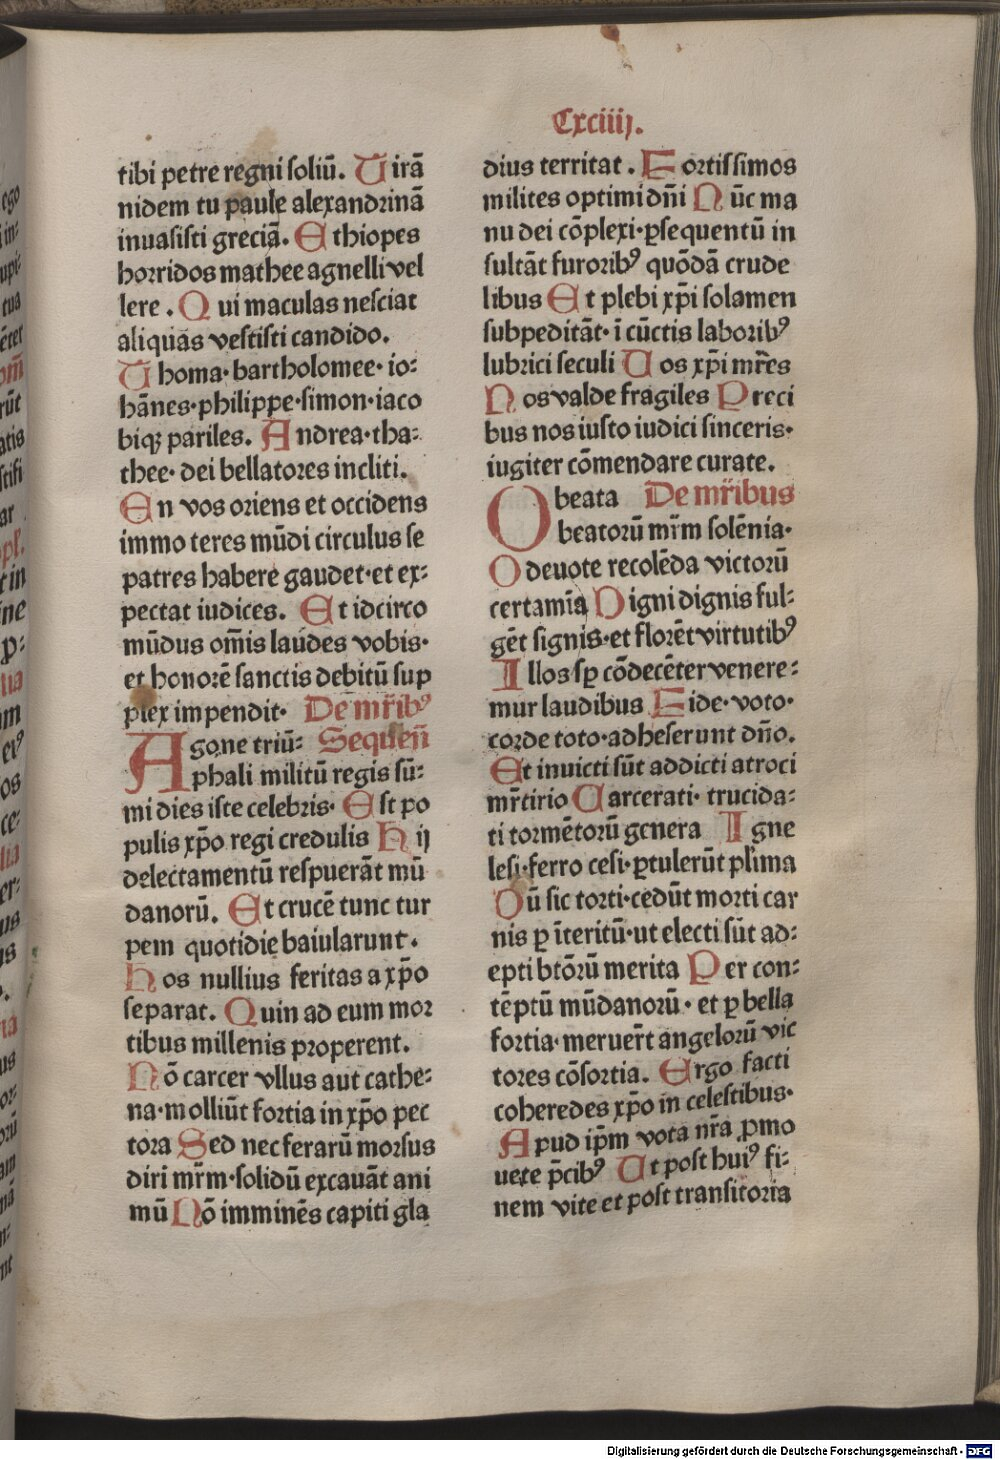 Cxciiij.
tibi petre regni soliū. Tirā
nidem tu paule alexandrinā
inuasisti greciā. Ethiopes
horridos mathee agnelli vel
lere. Qui maculas nesciat
aliquas vestisti candido.
Thoma· bartholomee· io⸗
hānes·philippe·simon·iaco
biqꝫ pariles. Andrea·tha⸗
thee· dei bellatores incliti.
En vos oriens et occidens
immo teres mūdi circulus se
patres habere gaudet·et ex⸗
pectat iudices. Et idcirco
mūdus om̄is laudes vobis·
et honorē sanctis debitū sup
plex impendit· De mr̄ibꝰ
Agone triū⸗ Sequen̄
phali militū regis sū⸗
mi dies iste celebris· Est po
pulis xp̄o regi credulis Hij
delectamentū respuerāt mū
danorū. Et crucē tunc tur
pem quotidie baiularunt.
Hos nullius feritas a xp̄o
separat. Quin ad eum mor
tibus millenis properent.
Nō carcer vllus aut cathe⸗
na·molliūt fortia in xp̄o pec
tora Sed nec ferarū morsus
diri mr̄m·solidū excauāt ani
mū Nō imminēs capiti gla
dius territat. Fortissimos
milites optimi dn̄i Nūc ma
nu dei cōplexi·ꝑsequentū in
sultāt furoribꝰ quōdā crude
libus Et plebi xp̄i solamen
subpeditāt· ī cūctis laboribꝰ
lubrici seculi Uos xp̄i mr̄es
Nos valde fragiles Preci
bus nos iusto iudici sinceris·
iugiter cōmendare curate.
O beata De mr̄ibus
beatorū mr̄m solēnia·
O deuote recolēda victorū
certamīa Digni dignis ful⸗
gēt signis·et florēt virtutibꝰ
Illos sꝑ cōdecēter venere⸗
mur laudibus Fide·voto·
corde toto·adheserunt dn̄o.
Et inuicti sūt addicti atroci
mr̄tirio Carcerati· trucida⸗
ti tormētorū genera Igne
lesi·ferro cesi·ꝑtulerūt pl̄ima
Dū sic torti·cedūt morti car
nis ꝑ īteritū·ut electi sūt ad⸗
epti btōrū merita Per con⸗
tēptū mūdanorū· et ꝑ bella
fortia·meruer̄t angelorū vic
tores cōsortia. Ergo facti
coheredes xp̄o in celestibus·
Apud ip̄m vota nr̄a ꝓmo
uete p̄cibꝰ Ut post huiꝰ fi⸗
nem vite et post transitoria
Digitalisierung gefördert durch die Deutsche Forschungsgemeinschaft - DFG